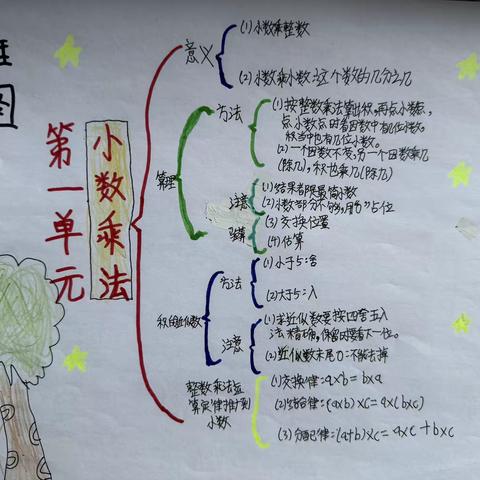 图
第一单元
小数乘法
意义
(1)小数乘整数
(2)小数乘小数:这个数的几分之几
算理
方法
(1)按整数乘法算出积,再点小数点,
点小数点因看因数中有几位小数,
积当中也有几位小数。
(2)一个因数不变,另一个因数乘几
(除几),积也乘几(除几)
注意
(1)结果都是最简小数
(2)小数部分不够,用"0"占位
验算
(3)交换位置
(4)估算
积的近似数
方法
(1)小于5:舍
(2)大于5:入
注意
(1)求近似数要按四舍五入
法精确,保留因要看下一位。
(2)近似数末尾0:不能去掉
整数乘法运
算定律推广到
小数
(1)交换律:a×b=b×a
(2)结合律:(a×b)×c=a×(b×c)
(3)分配律:(a+b)×c=a×c+b×c